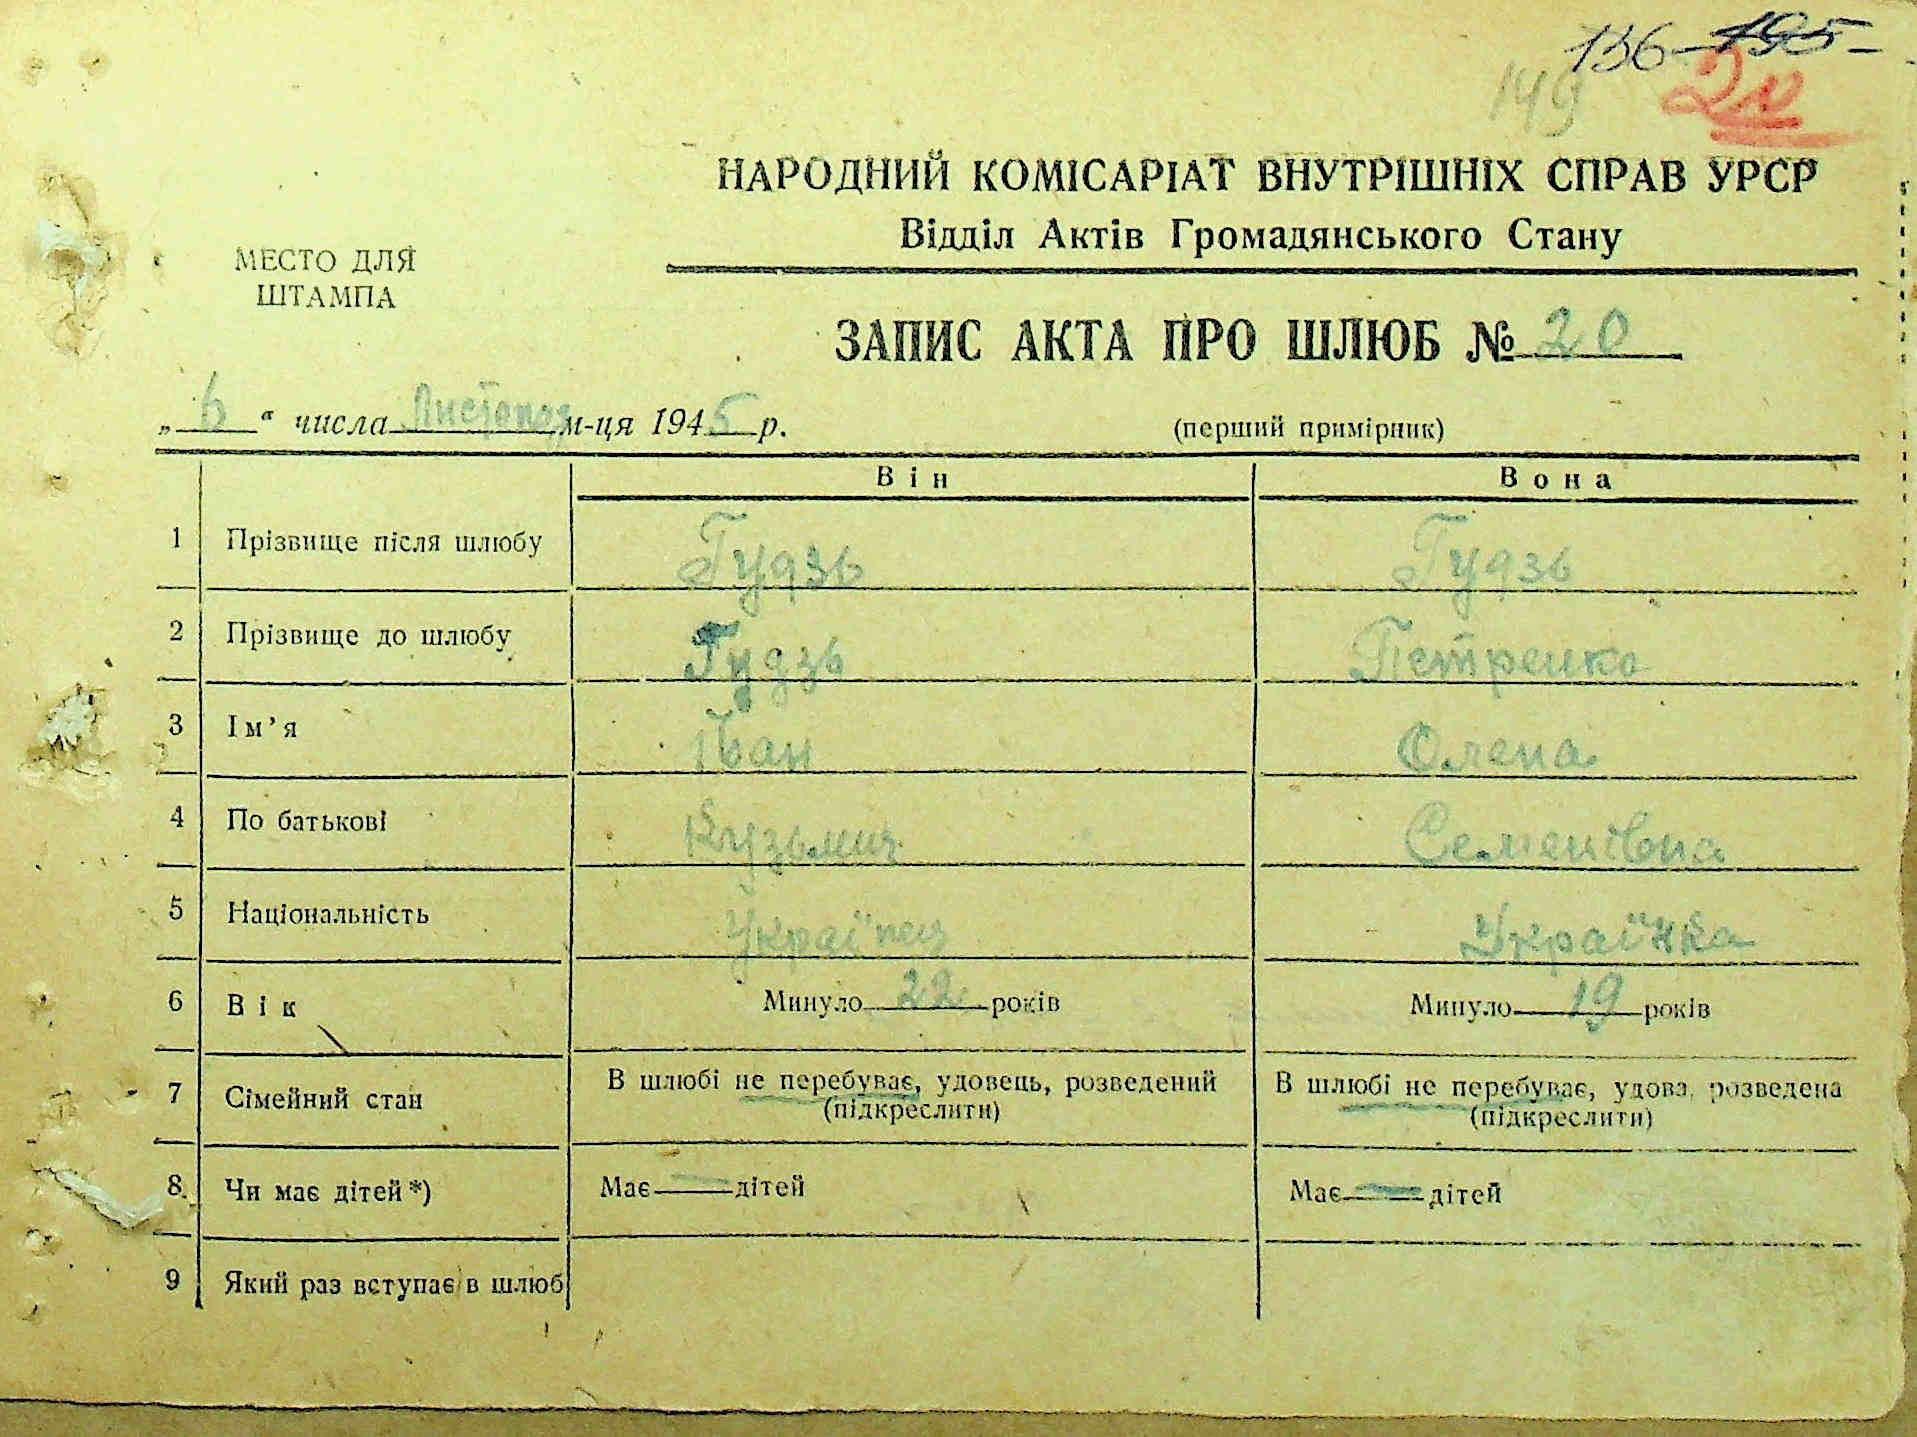 136 195
149 20
НАРОДНИЙ КОМІСАРІАТ ВНУТРІШНІХ СПРАВ УРСР
Відділ Актів Громадянського Стану
МЕСТО ДЛЯ
ШТАМПА
ЗАПИС АКТА ПРО ШЛЮБ № 20
„ 6 “ числа Листопад м-ця 1945 р.
(перший примірник)
Він Вона
1 Прізвище після шлюбу Гудзь Гудзь
2 Прізвище до шлюбу Гудзь Петренко
3 Ім’я Іван Олена
4 По батькові Кузьмич Семенівна
5 Національність Українец Українка
6 Вік Минуло 22 років Минуло 19 років
7 Сімейний стан В шлюбі не перебуває, удовець, розведений В шлюбі не перебуває, удова, розведена
(підкреслити) (підкреслити)
8. Чи має дітей*) Має — дітей Має — дітей
9 Який раз вступає в шлюб